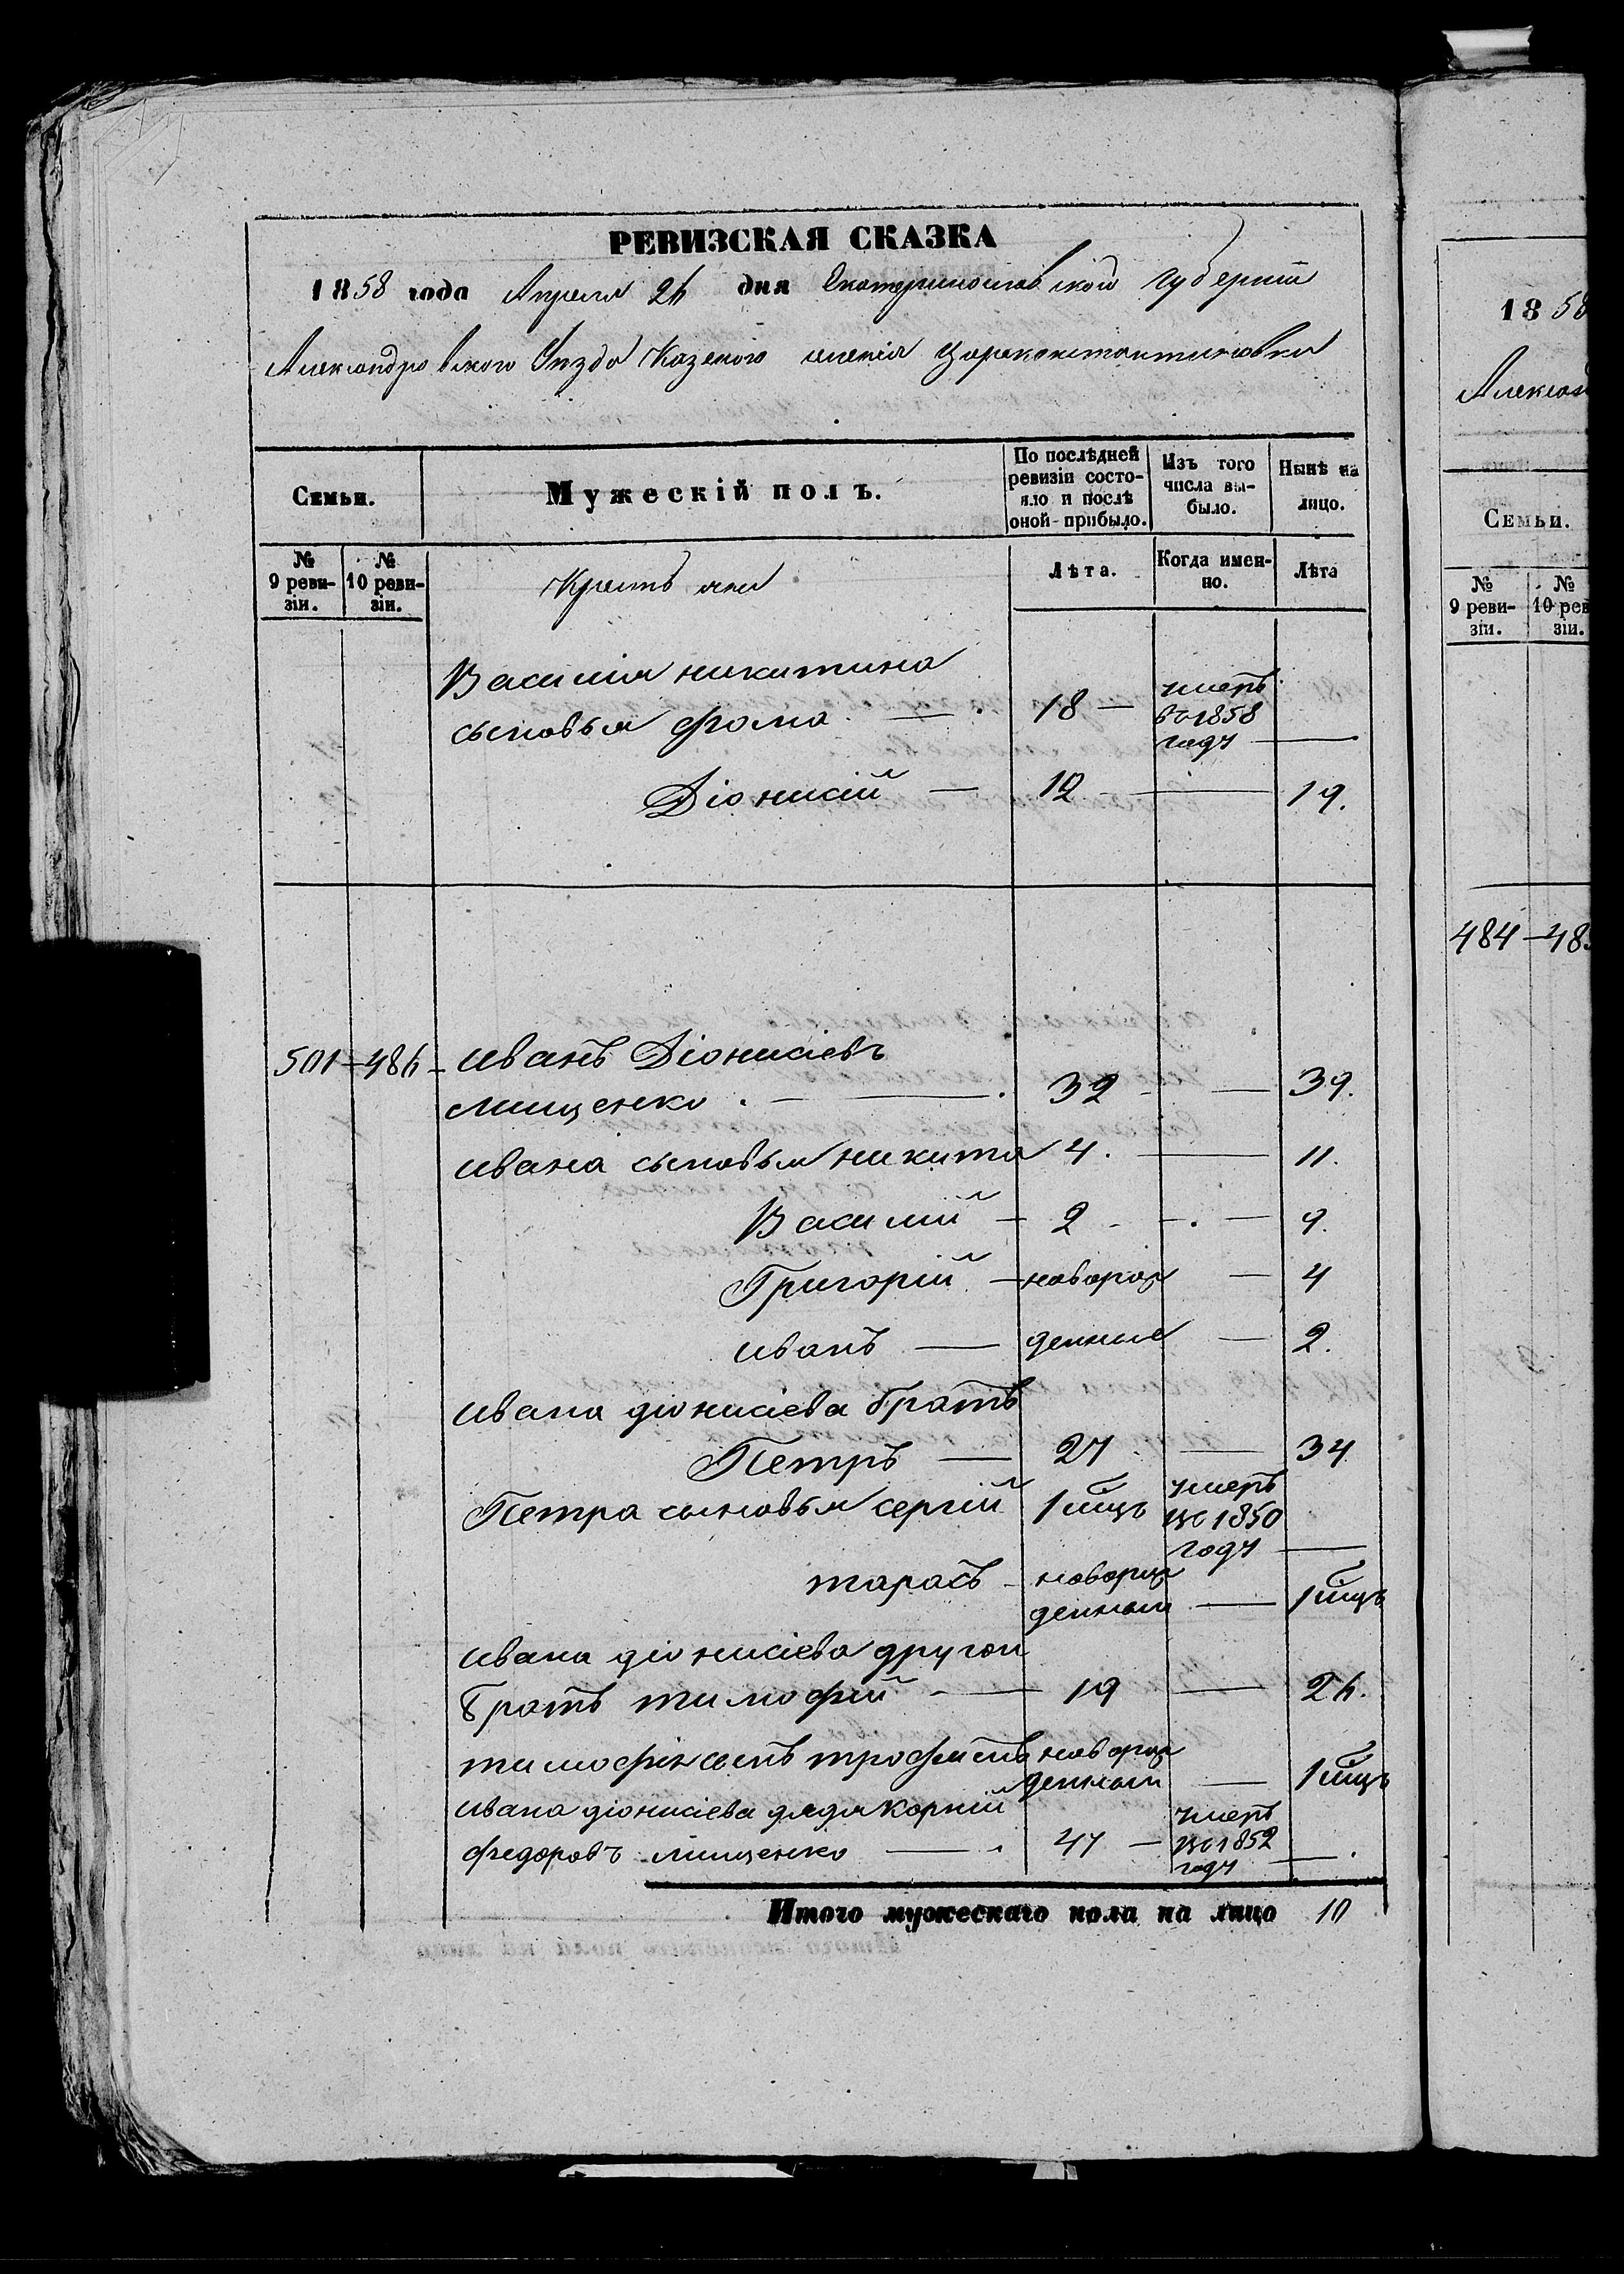 РЕВИЗСКАЯ СКАЗКА
1858 года Апреля 26 дня Екатеринославской губернии
Александровского Уезда Казеного селенія Цареконстантиновки
Семьи.
Мужескій полъ.
По послѣдней ревизіи состояло и послѣ оной прибыло.
Изъ того числа выбыло.
Нынѣ на лицо.
№ 9 ревизіи.
№ 10 ревизіи.
Крестьяне
Лѣта.
Когда именно.
Лѣта
Василия никитина
сыновья фома 18 умеръ въ 1858 году
Діонисій 12 19.
501 486 иванъ Діонисіевъ
мищенко 32 39.
ивана сыновья никита 4. 11.
Василій 2 9.
Григорій новорож 4
иванъ денные 2.
ивана діонисіева братъ
Петръ 27 34
Петра сыновья сергій 1 мцъ умеръ въ 1850 году
тарасъ новорож денный 1 мцъ
ивана діонисіева другой
братъ тимофей 19 26.
тимофея сынъ трофимъ новорож денный 1 мцъ
ивана діонисіева дядя Корній
федоровъ мищенко 47 умеръ въ 1852 году
Итого мужескаго пола на лицо 10
1858
Александ
Семьи.
№ 9 ревизіи.
№ 10 рев зіи.
484 48